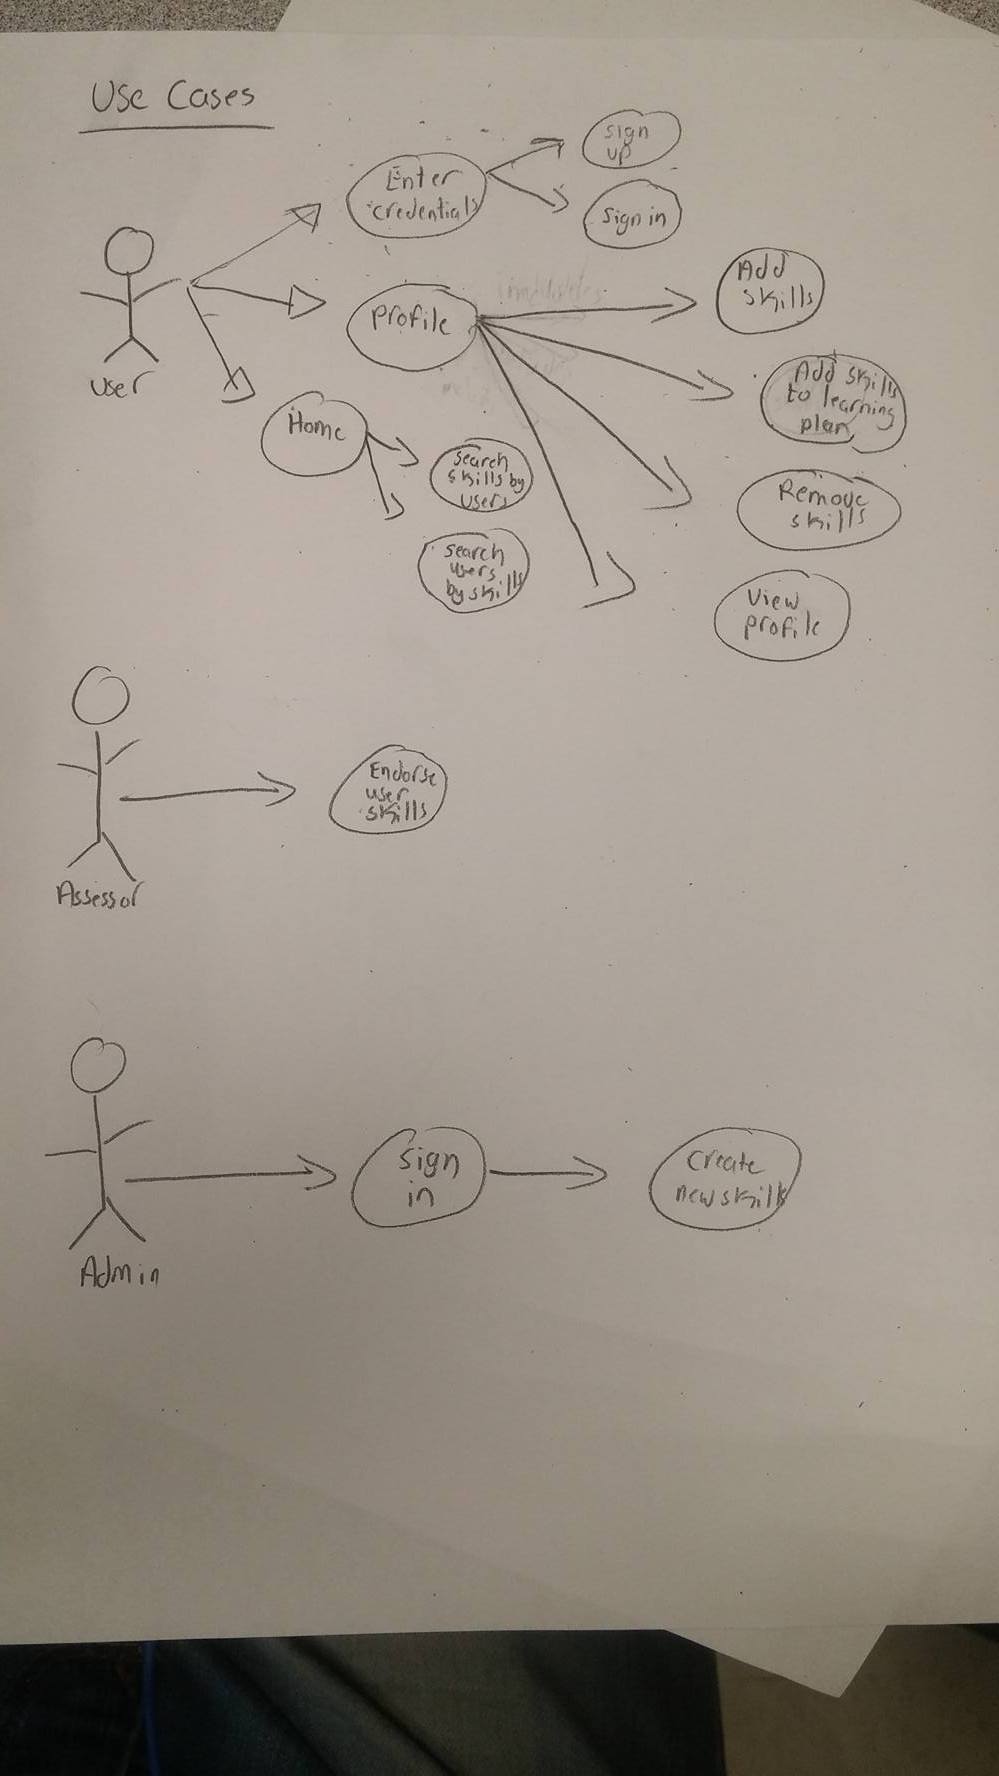 Use Cases
Enter
credentials
sign
up
sign in
User
Profile
Add
skills
Add skills
to learning
plan
Remove
skills
View
profile
Home
search
skills by
users
search
users
by skills
Assessor
Endorse
user
skills
Admin
sign
in
create
new skills